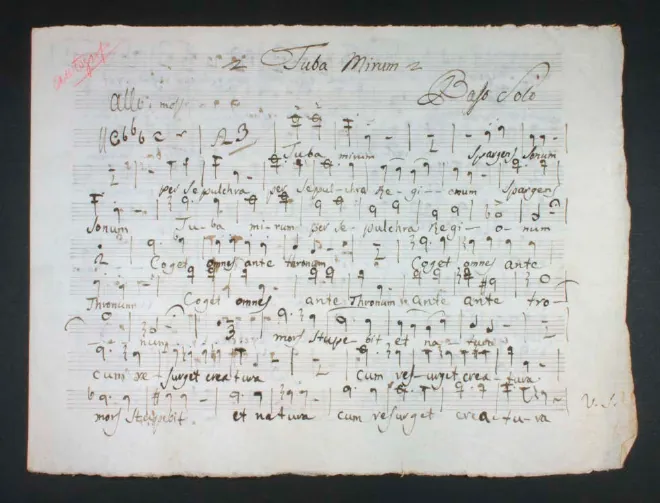 Tuba Mirum
Baſo Solo
Allo. moſſo
Tuba mirum Spargens Sonum
per Sepulchra per Sepul-chra Re-gi-onum Spargens
Sonum Tu-ba mi-rum per se-pulchra Regi-o-num
Coget omnes ante thronum Coget omnes ante
Thronum Coget omnes ante Thronum ante ante tro-
num mors Stupe bit et na-tura
cum re-surget creatura cum res-urget crea-tura
mors Stupebit et natura cum resurget crea-tu-ra
V. S.